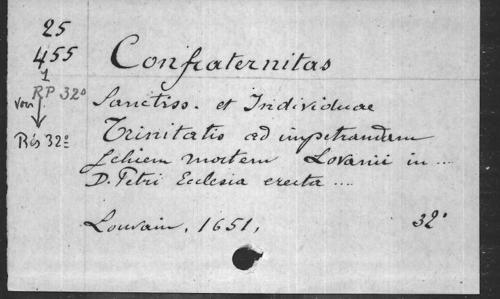 25
455
1
RP 32º
voir
Rés 32º
Confraternitas
Sanctiss. et Individuae
Trinitatis ad impetrandam
felicem mortem Lovanii in ....
D. Petri Ecclesia erecta ....
Louvain, 1651,
32º